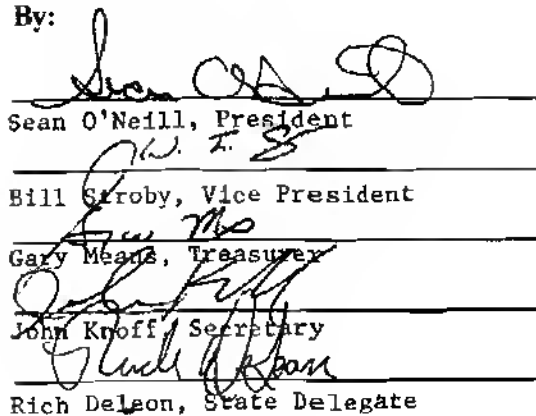 By:
Sean O'Neill, President
Bill Stroby, Vice President
Gary Means, Treasurer
John Knoff, Secretary
Rich Deleon, State Delegate